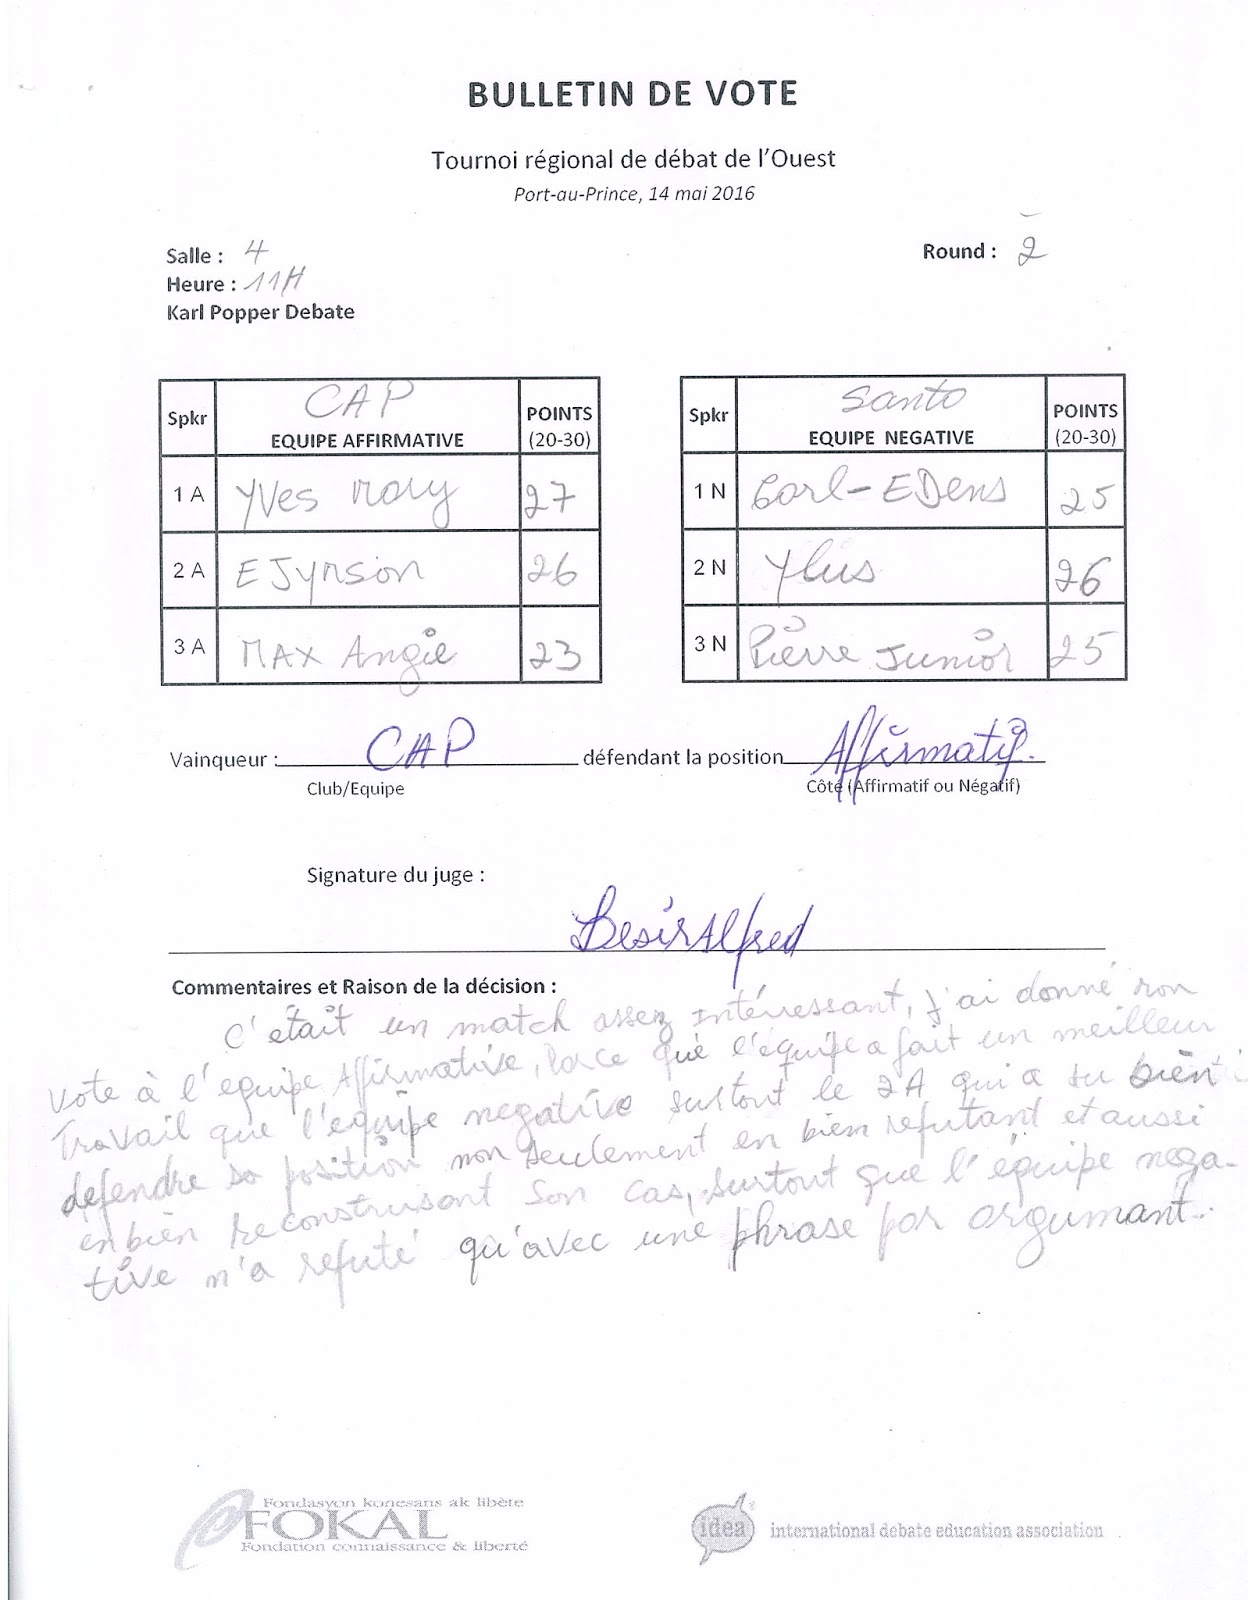 BULLETIN DE VOTE
Tournoi régional de débat de l'Ouest
Port-au-Prince, 14 mai 2016
Salle : 4
Round : 2
Heure : 11H
Karl Popper Debate
Spkr CAP EQUIPE AFFIRMATIVE POINTS (20-30)
1 A Yves 27
2 A EJynson 26
3 A MAX Angie 23
Spkr Santo EQUIPE NEGATIVE POINTS (20-30)
1 N Carl-EDens 25
2 N 26
3 N Pierre Junior 25
Vainqueur : CAP défendant la position Affirmatif.
Club/Equipe Côté (Affirmatif ou Négatif)
Signature du juge :
BesirAlfred
Commentaires et Raison de la décision :
C'était un match assez intéressant, j'ai donné mon
vote à l'equipe Affirmative, parce que l'équipe a fait un meilleur
Travail que l'équipe negative surtout le 2A qui a su bien
defendre sa position non seulement en bien refutant et aussi
en bien reconstruisant son cas, surtout que l'équipe nega-
tive n'a refuté qu'avec une phrase par argumant.
Fondasyon konesans ak libète
FOKAL
Fondation connaissance & liberté
idea international debate education association